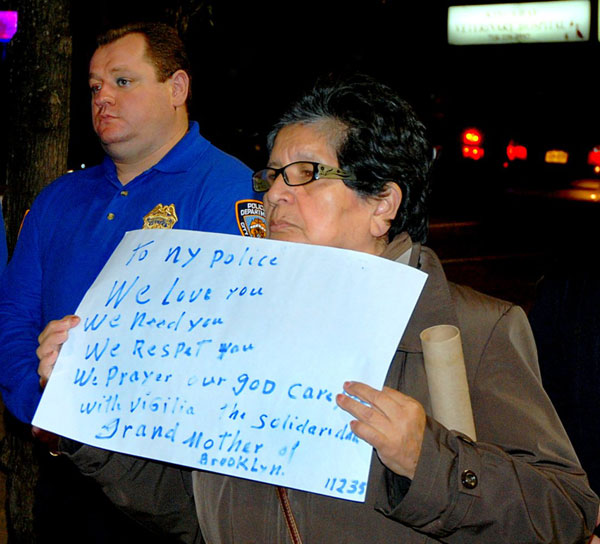 VETERINARY HOSPITAL
POLICE
DEPARTMENT
To NY Police
We Love you
We Need you
We Respet you
We Prayer our god care
with vigilia the solidaridad
grand Mother of
BROOKLYN.
11235